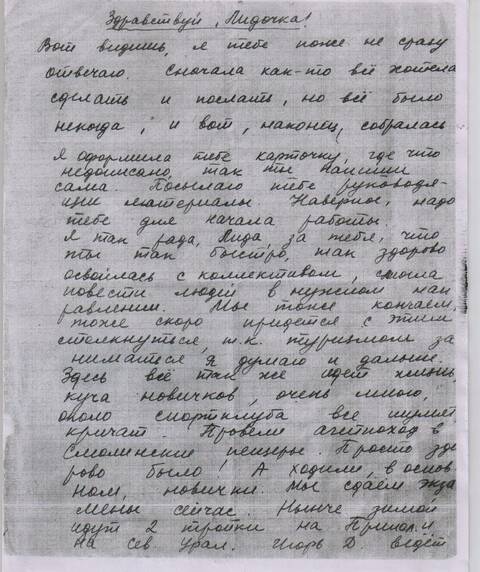 Здравствуй, Лидочка!
Вот видишь, я тебе тоже не сразу
отвечаю. Сначала как-то всё хотела
сделать и послать, но всё было
некогда, и вот, наконец, собралась
Я оформила тебе карточку, где что
недописано, так ты напиши
сама. Посылаю тебе руководя-
щии материалы. Наверное, надо
тебе для начала работы.
Я так рада, Лида, за тебя, что
ты так быстро, так здорово
освоилась с коллективом, смогла
повести людей в нужном нап
равлении. Мы тоже кончаем,
тоже скоро придётся с этим
столкнуться, т.к. туризмом за
ниматься я думаю и дальше.
Здесь всё так же идёт жизнь,
куча новичков, очень много,
около спортклуба все шумят
кричат. Провели агитпоход в
Смолинские пещеры. Просто здо
рово было! А ходили, в основ
ном, новички. Мы сдаём экза
мены сейчас. Нынче зимой
идут 2 тройки на Припол. и
на Сев Урал. Игорь Д. ведёт